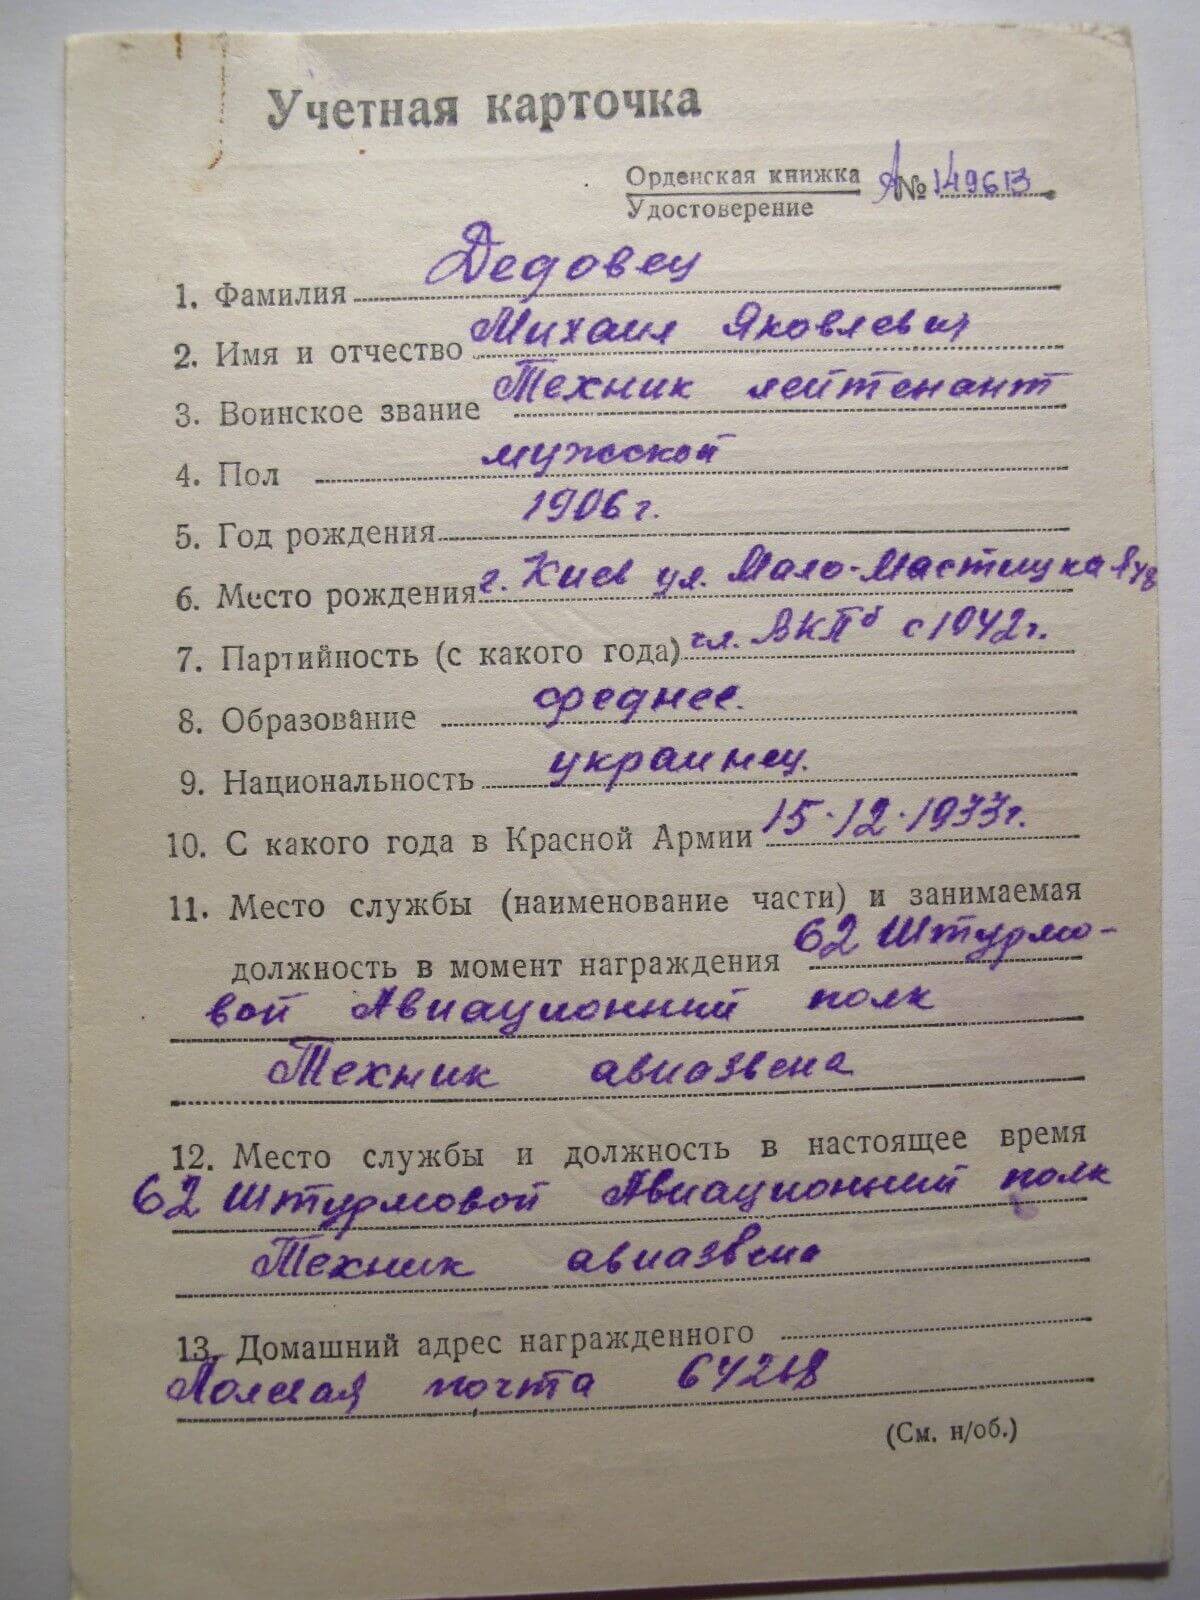 Учетная карточка
Орденская книжка А№ 149613
Удостоверение
1. Фамилия Дедовец
2. Имя и отчество Михаил Яковлевич
3. Воинское звание Техник лейтенант
4. Пол мужской
5. Год рождения 1906 г.
6. Место рождения г. Киев ул. Мало-Мастицкая
7. Партийность (с какого года) чл. ВКПб с 1942 г.
8. Образование среднее.
9. Национальность украинец.
10. С какого года в Красной Армии 15.12.1933 г.
11. Место службы (наименование части) и занимаемая
должность в момент награждения 62 Штурмо-
вой Авиационний полк
Техник авиазвена
12. Место службы и должность в настоящее время
62 Штурмовой Авиационний полк
Техник авиазвена
13. Домашний адрес награжденного
Полевая почта 64218
(См. н/об.)